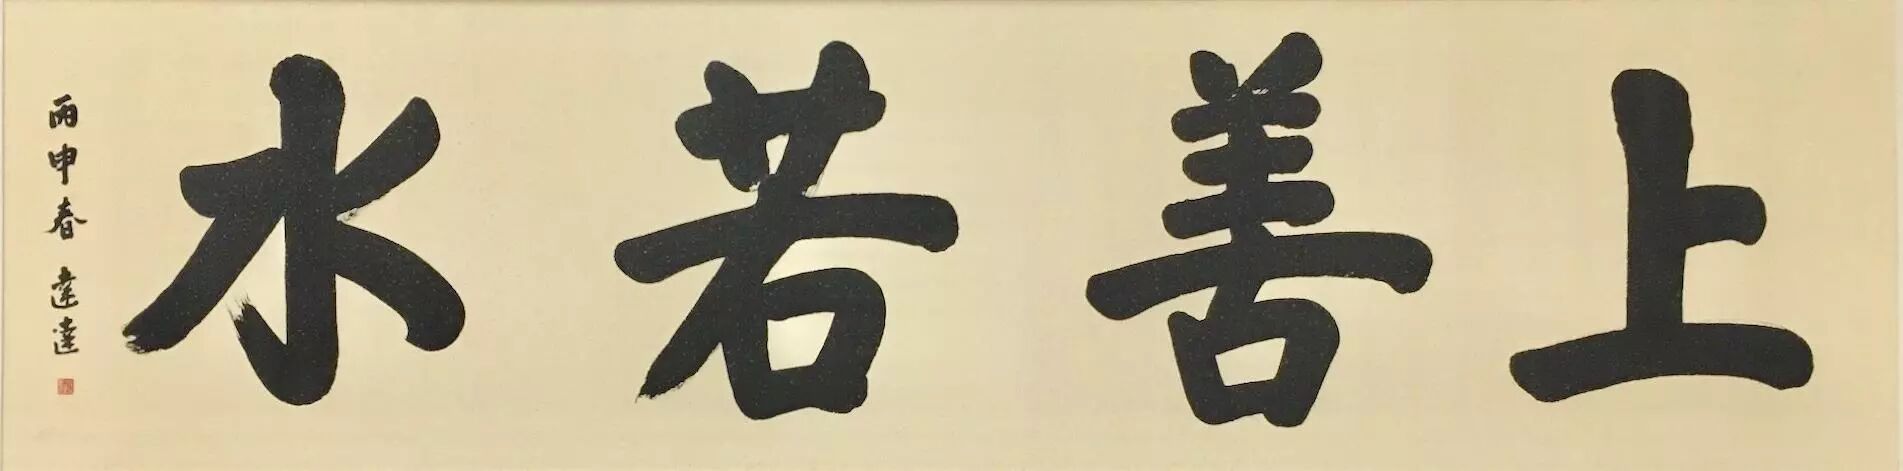 上善若水
丙申春 達達